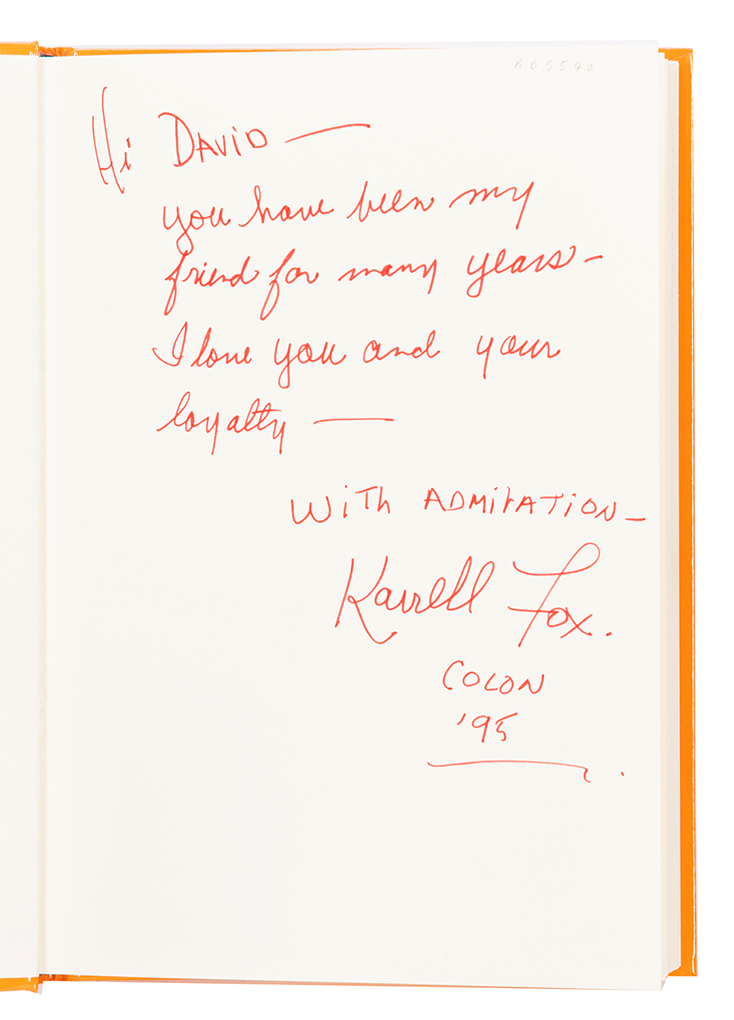 R65540
Hi David —
you have been my
friend for many years -
I love you and your
loyalty —
With ADMIRATION -
Karrell Fox.
COLON
'95